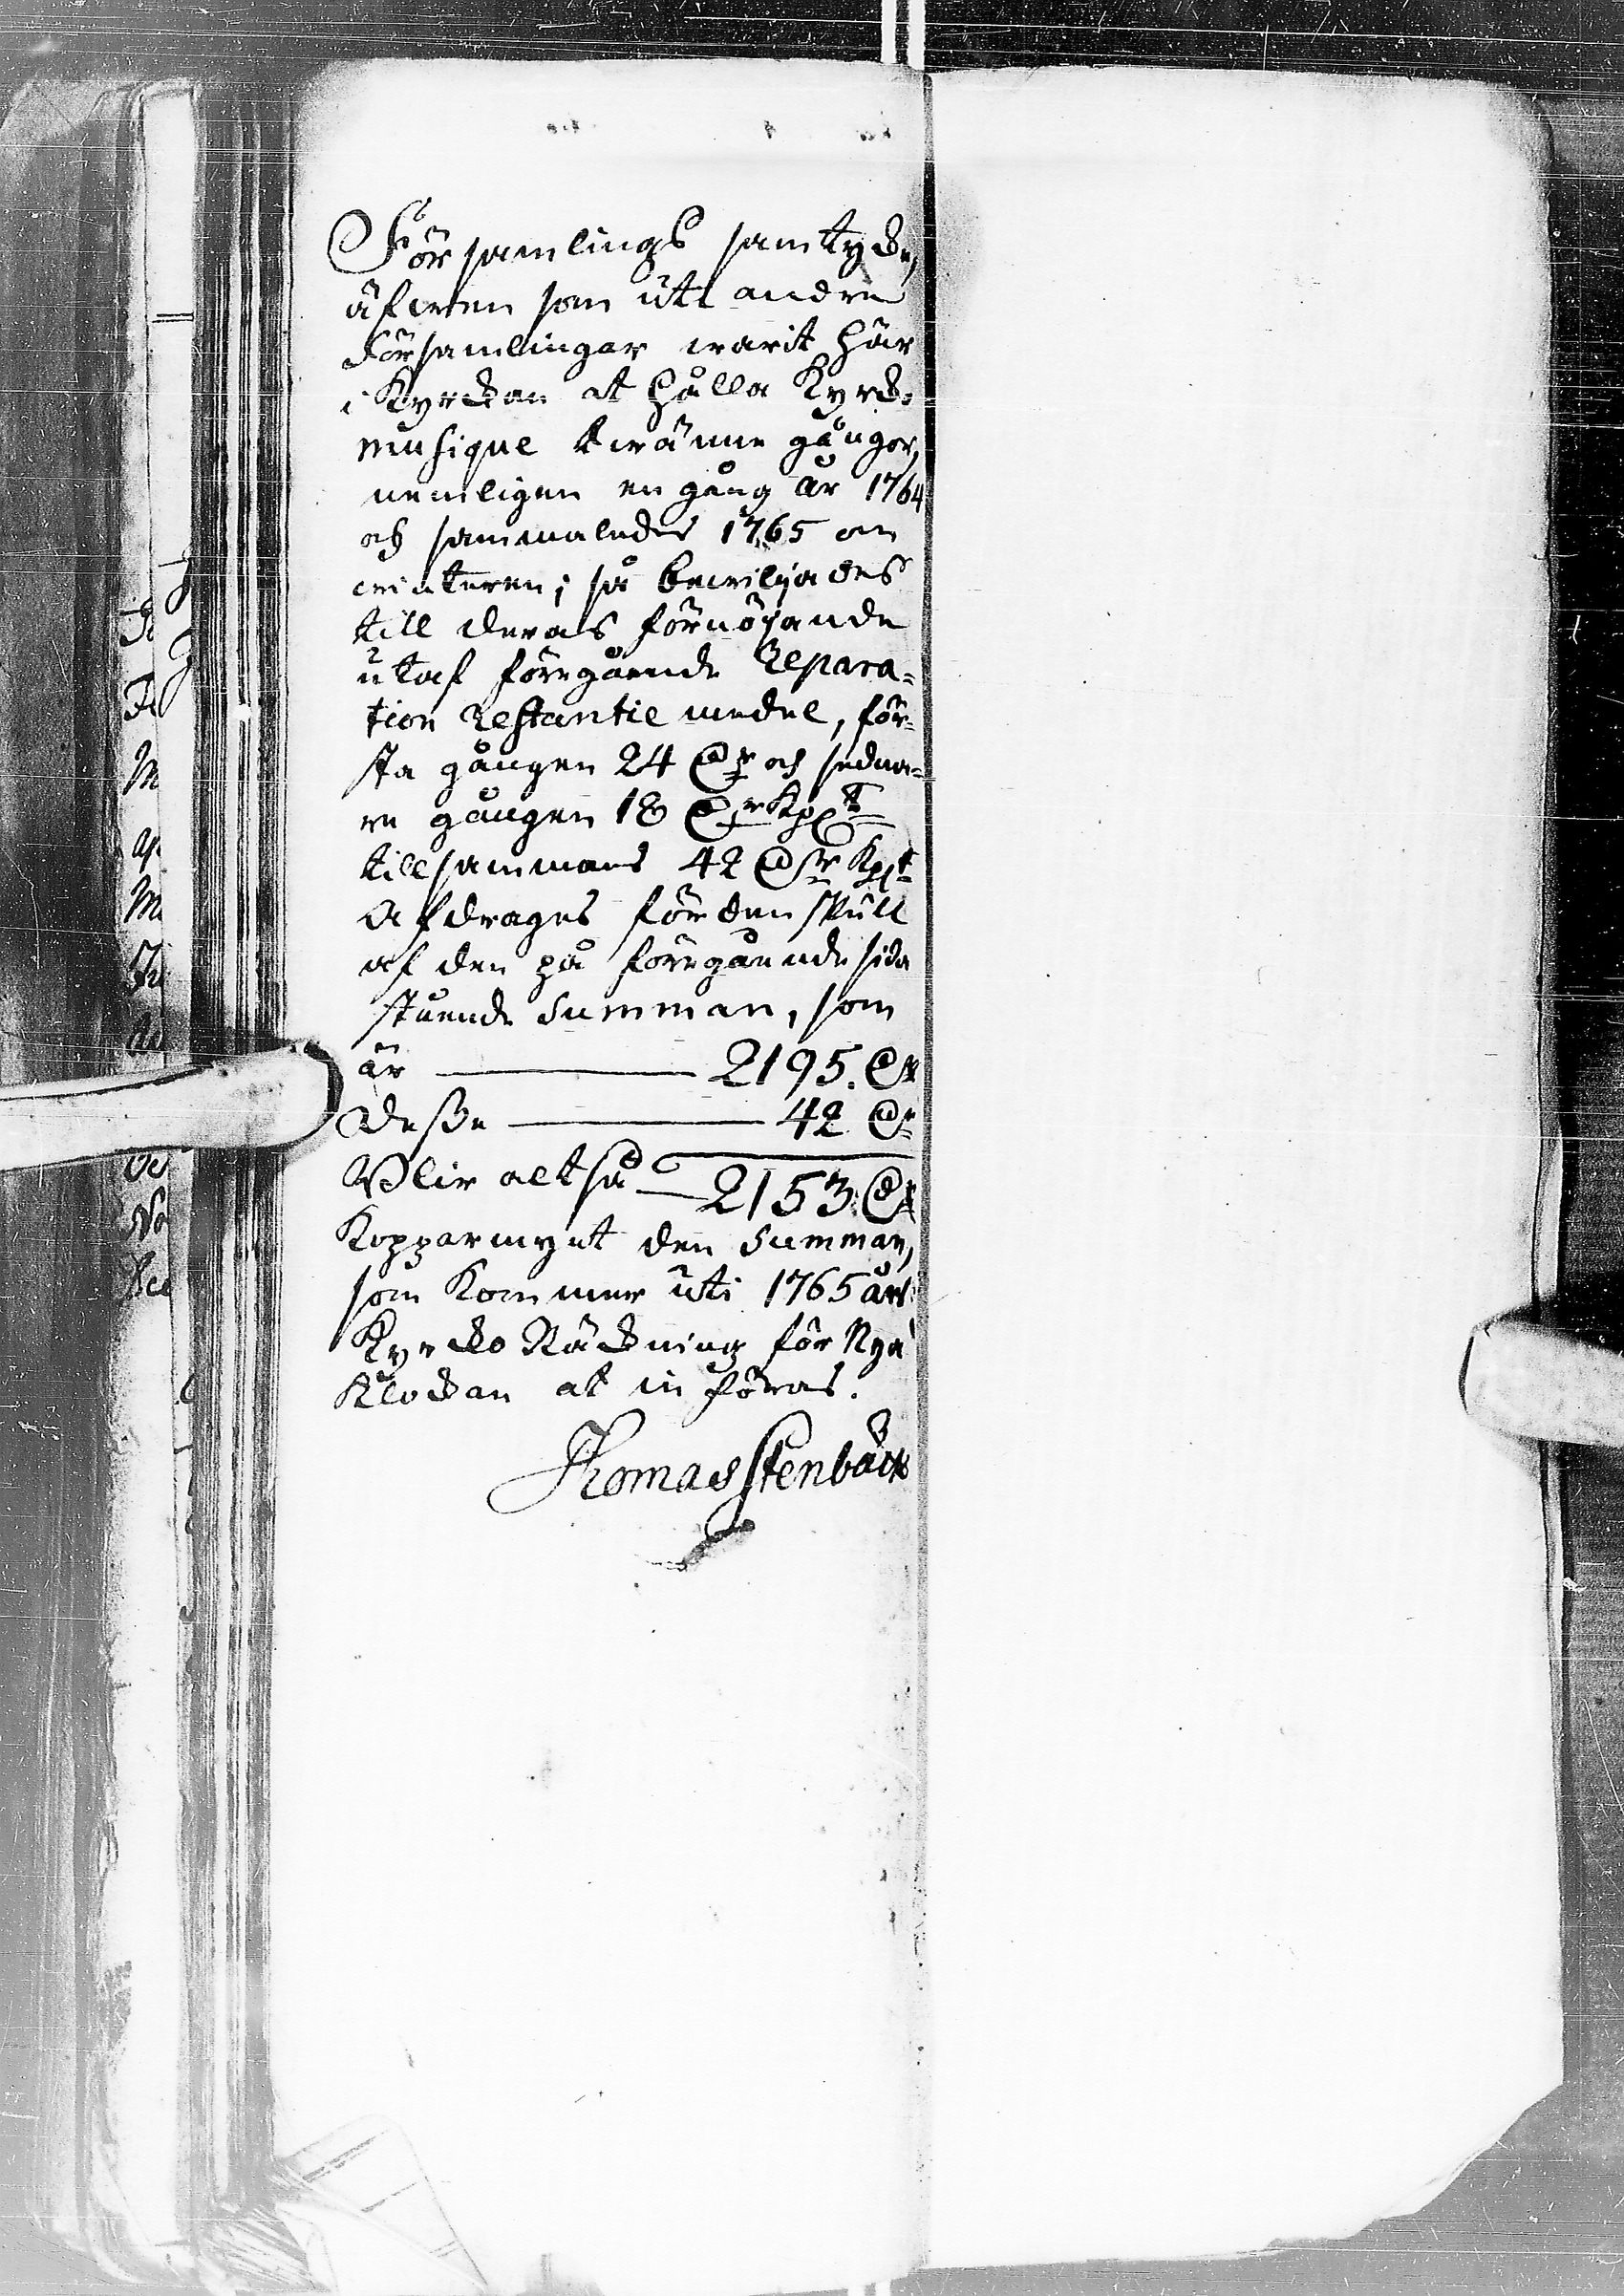 Församlings samtycke,
äfwen som uti andre
Församlingar warit här
i Kyrckan at hålla Kyrck-
musique twänne gångor,
nemligen en gång år 1764
och sammaledes 1765 om
winteren; så bewiljades
till deras förnöjande
utaf föregående Repara-
tion Restantie medel, för-
sta gången 24 Dr och sedna-
re gången 18 Dr Kpmt
tillsammans 42 Dr Kpmt
Afdrages för den skull
af den på föregående sida
stående Summan, som
är ——— 2195. Dr
Desze ——— 42 Dr
Blir altså — 2153 Dr
Kopparmynt den Summan,
som kommer uti 1765 års
Kyrcko Räckning för Nya
Klockan at införas.
Thomas Stenbäck